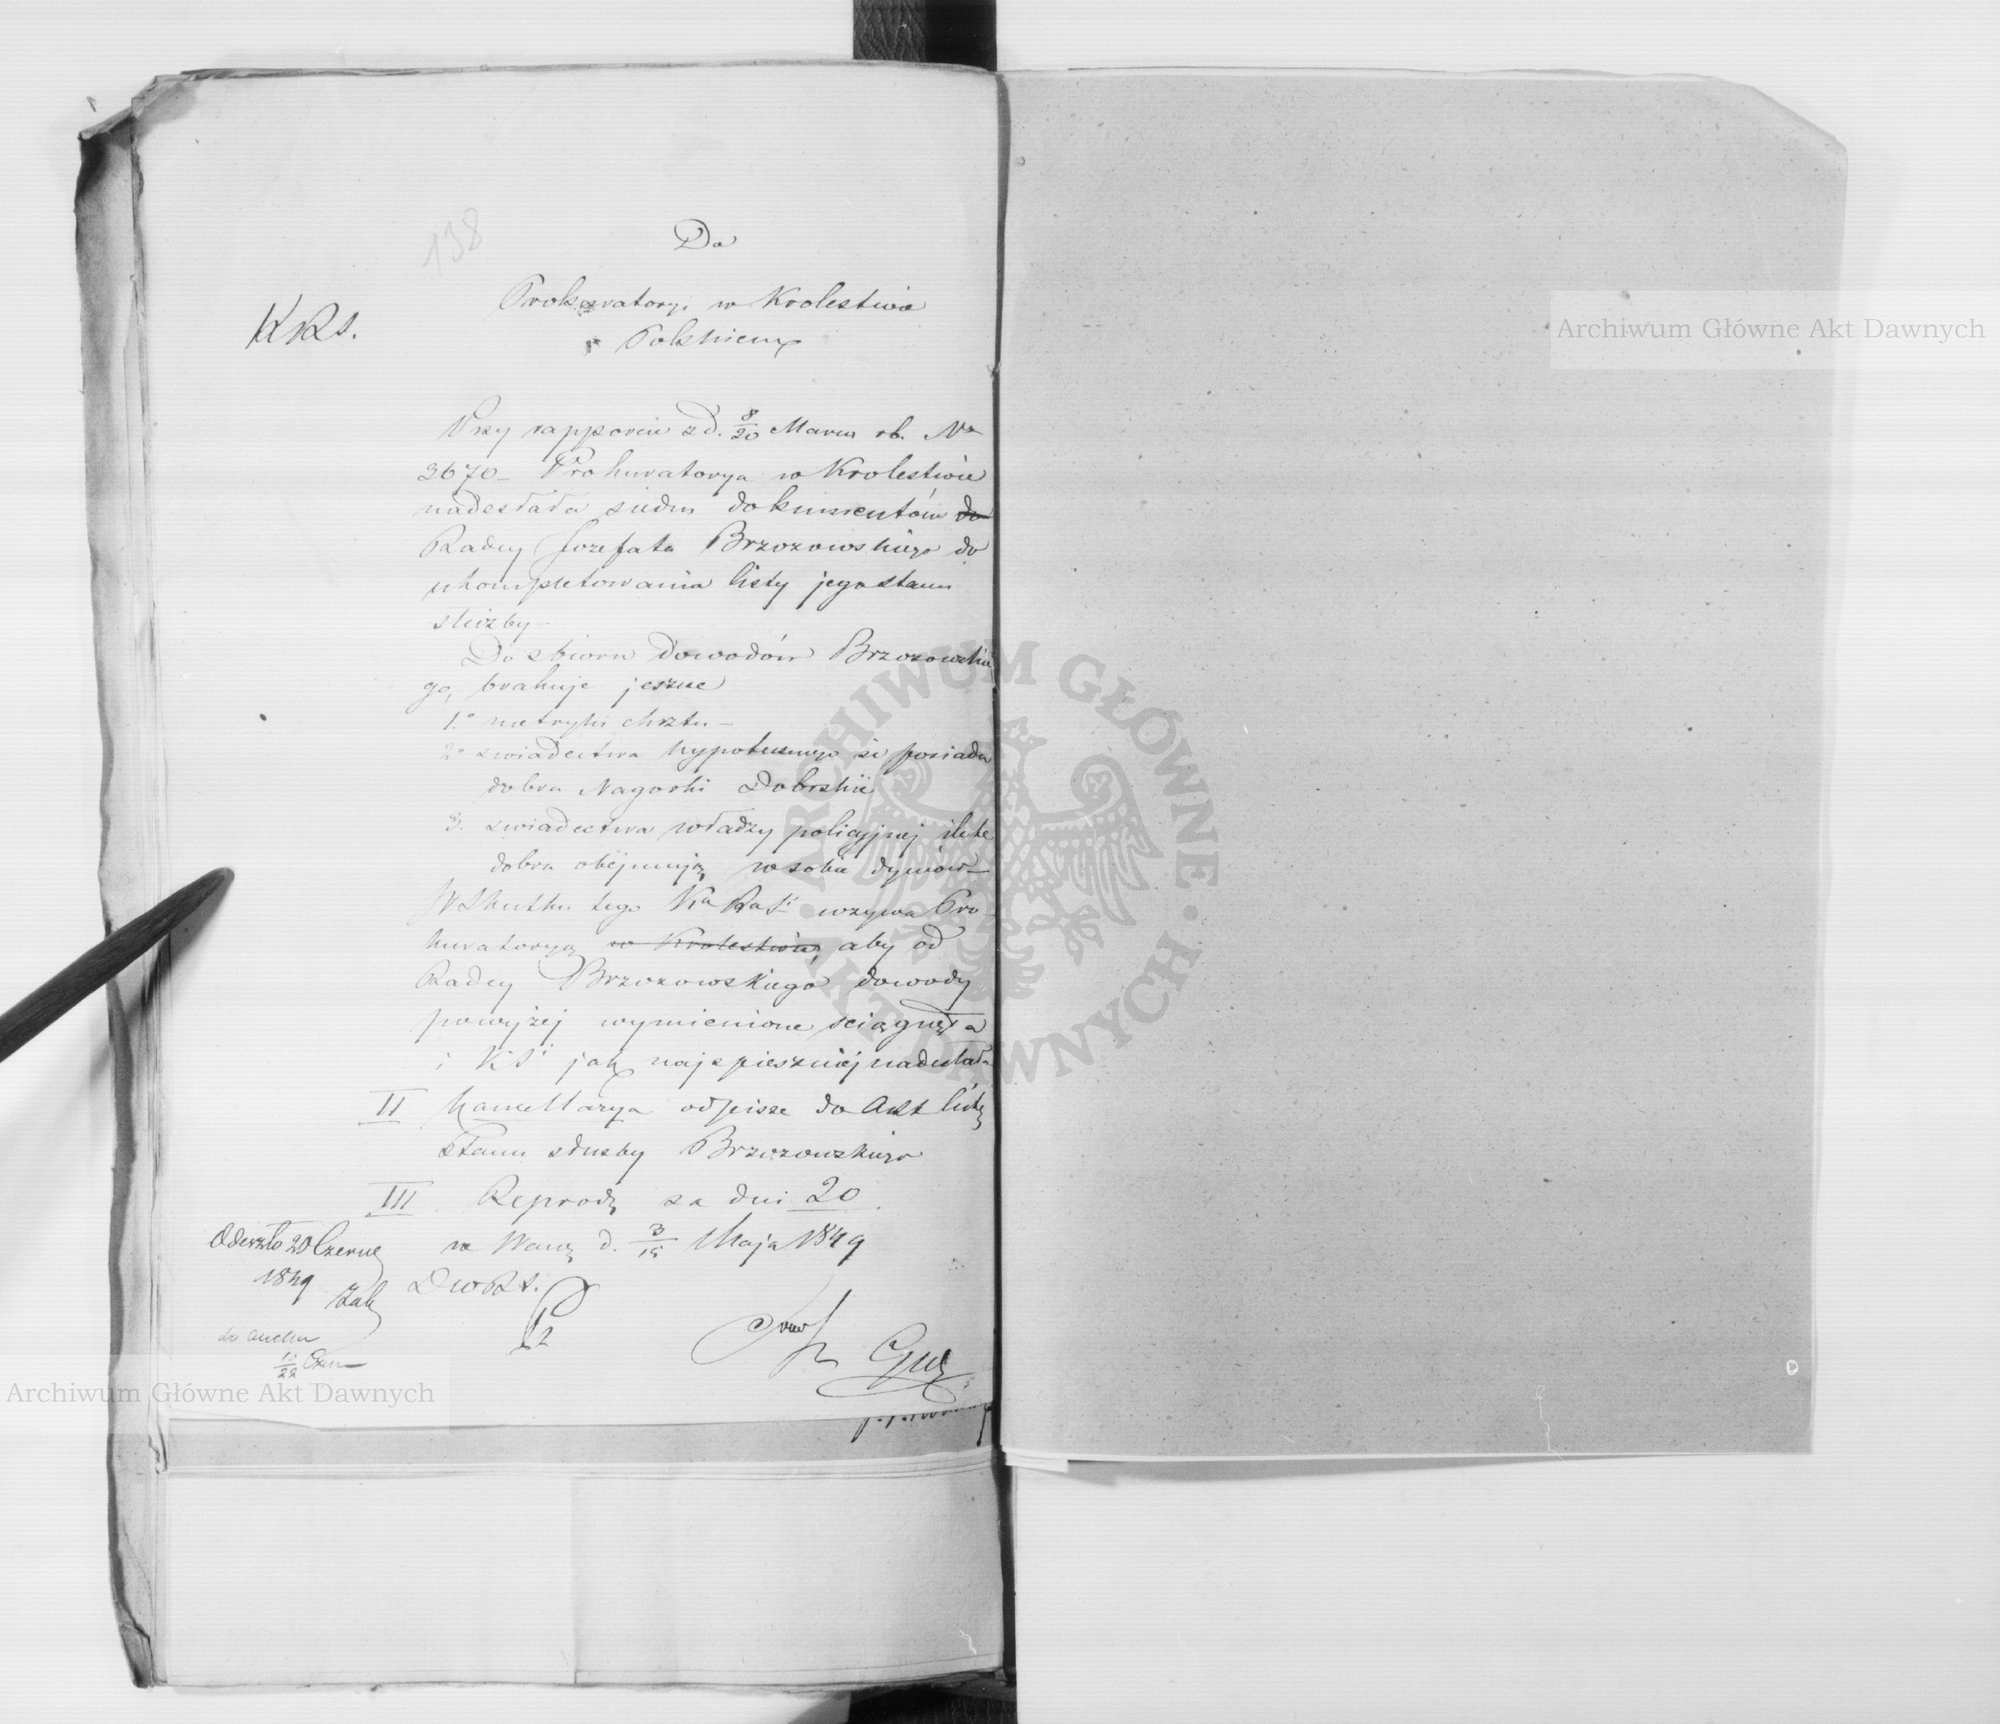 138
Do
Prokuratoryi w Krolestwie
Polskiem
KRS.
Przy rapporcie z d. 8/20 Marca rb. Nr
3670 – Prokuratorya w Krolestwie
nadesłała siedm dokumentów do
Radcy Jozefata Brzozowskiego do
ukompletowania listy jego stanu
służby –
Do zbioru dowodów Brzozowskie
go, brakuje jeszcze
1.° metryki chrztu –
2° swiadectwa hypotecznego że posiada
dobra Nagorki Dobrskie
3. swiadectwa władzy policyjnej ile te
dobra obejmują w sobie dymów –
W skutku tego wzywa Pro
kuratoryą w Krolestwie, aby od
Radcy Brzozowskiego dowody
powyżej wymienione sciągnęła
i jak najspieszniej nadesłała
II Kancellarya odpisze do Akt listę
stanu służby Brzozowskiego
III Reprod. za dni 20
w Warsz. d. 3/15 Maja 1849
Odeszło 20 Czerwc
1849
DwRS.
Archiwum Główne Akt Dawnych
Archiwum Główne Akt Dawnych
ARCHIWUM GŁÓWNE AKT DAWNYCH